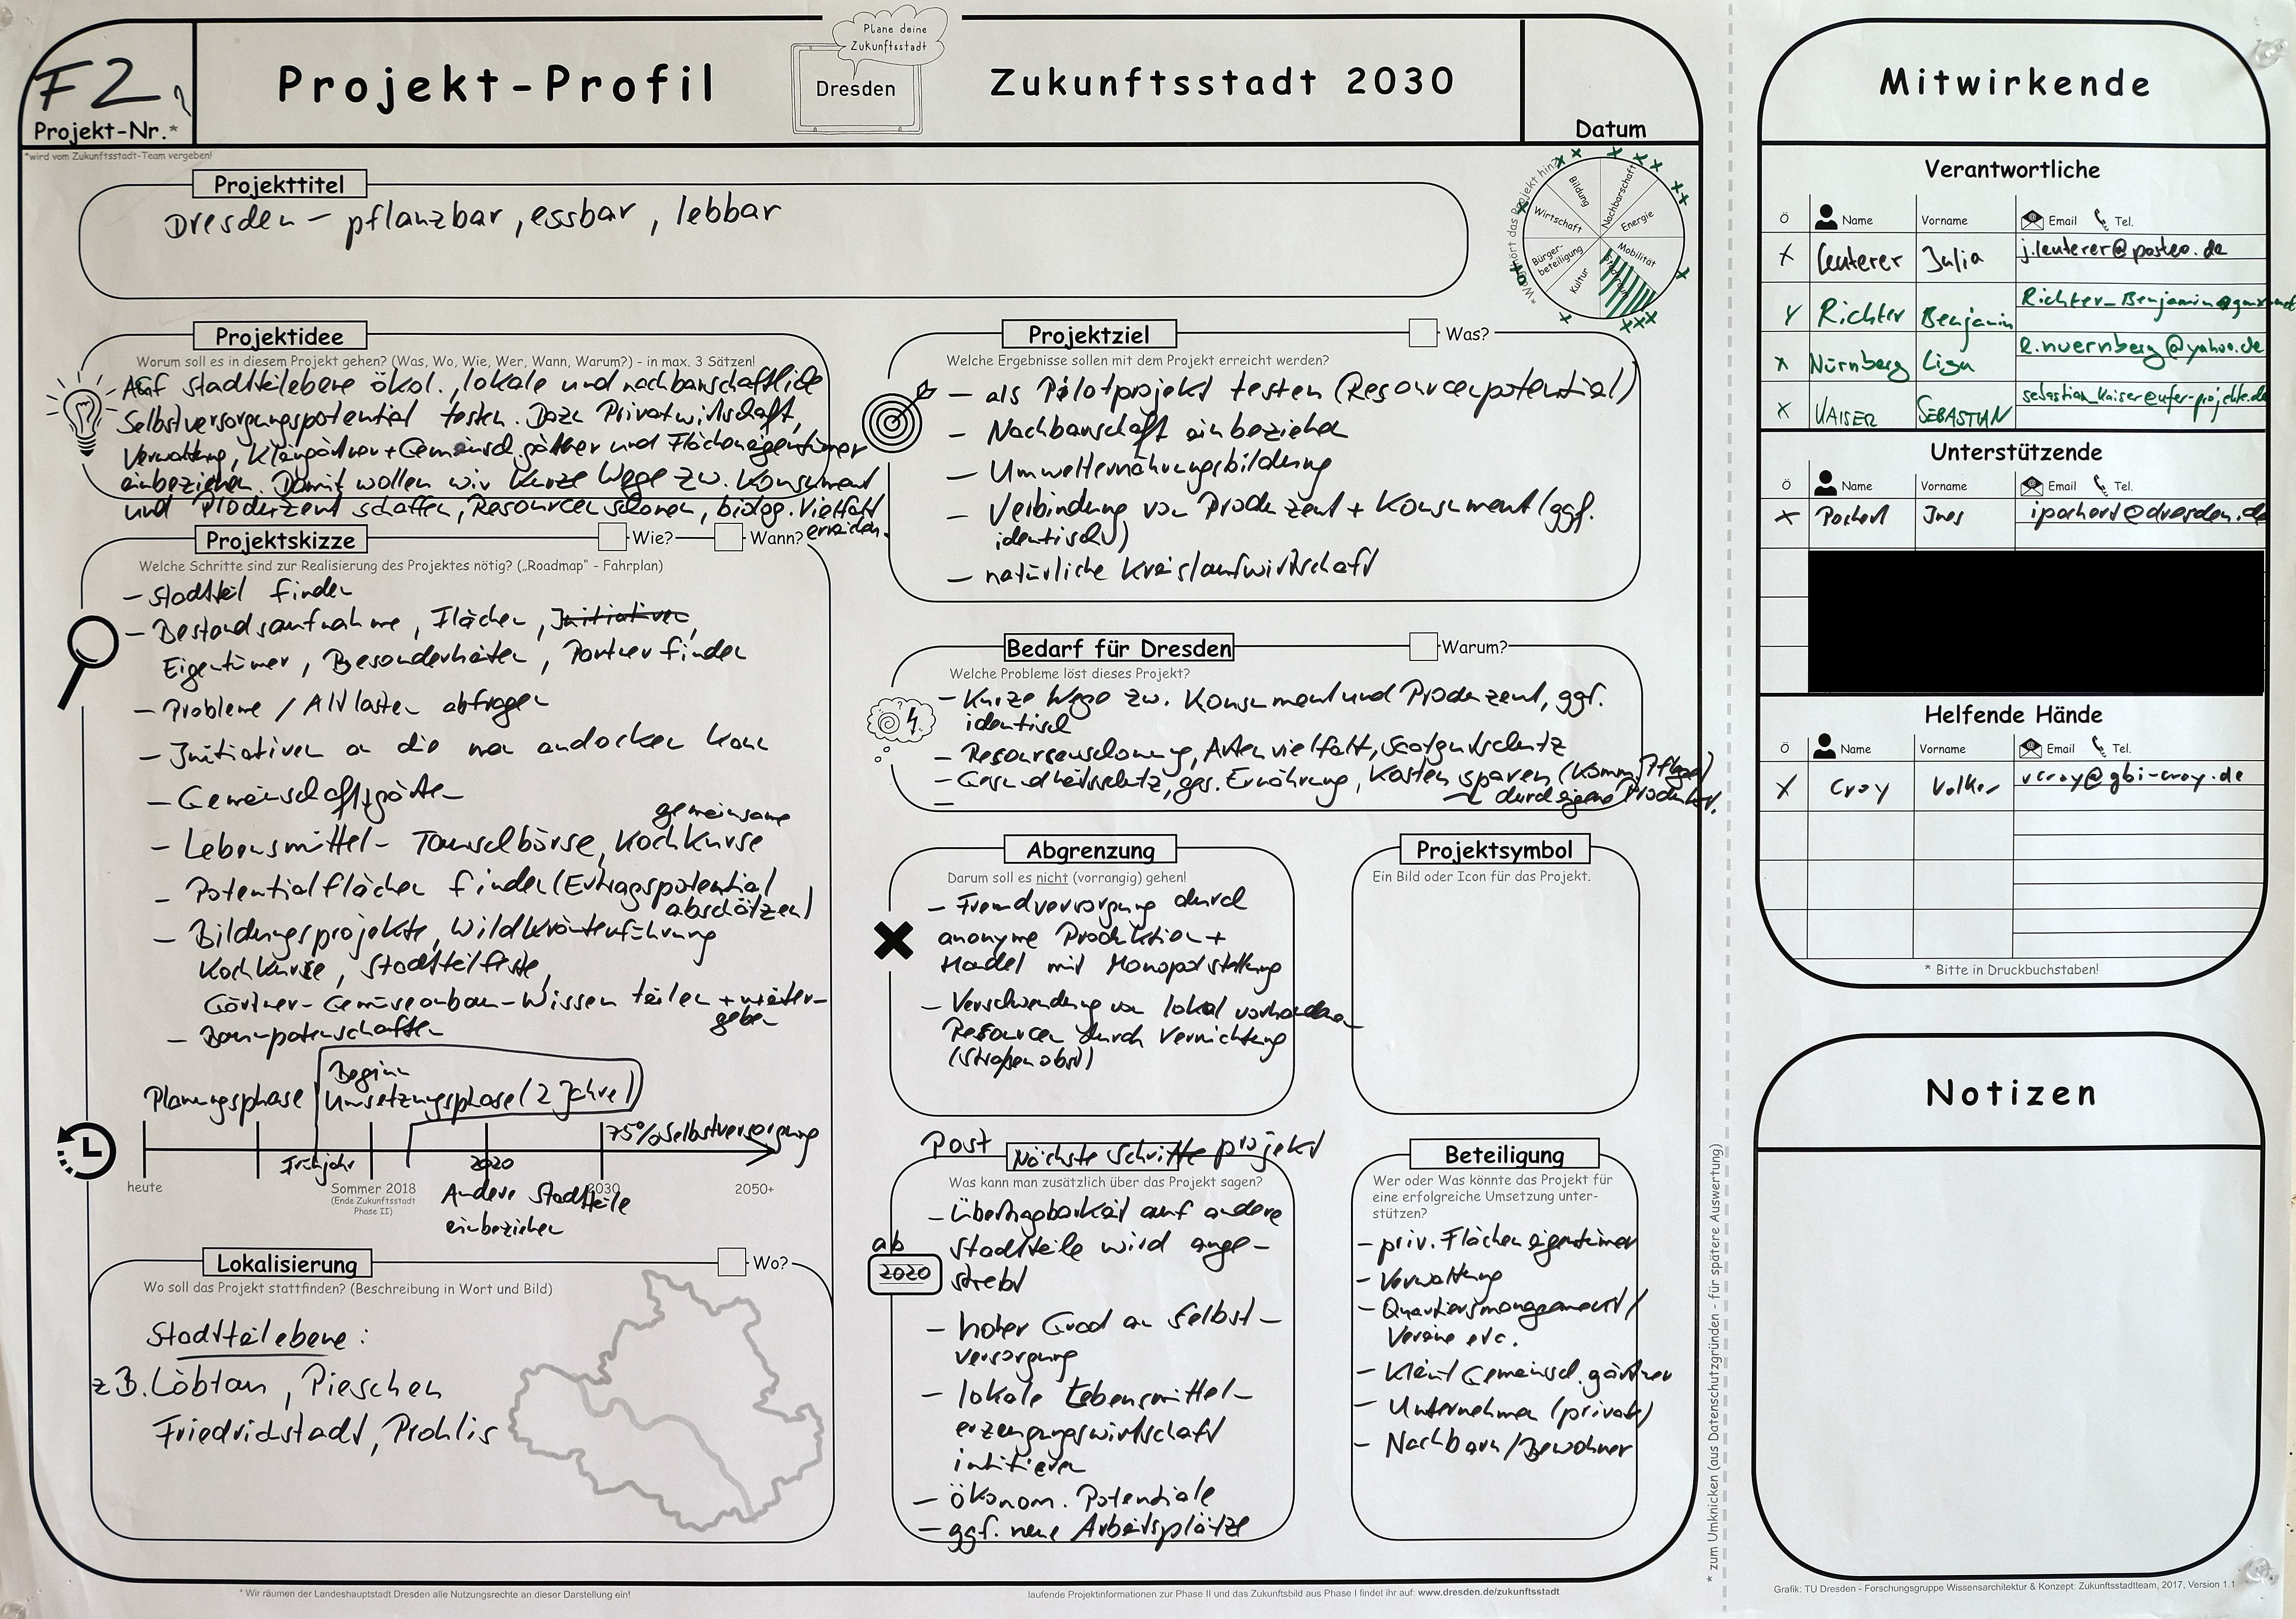 F2
Projekt-Nr.*
*wird vom Zukunftsstadt-Team vergeben!
Projekt-Profil
Plane deine
Zukunftsstadt
Dresden
Zukunftsstadt 2030
Datum
Projekttitel
Dresden – pflanzbar, essbar, lebbar
Bildung
Nachbarschaft
Energie
Mobilität
Kultur
Bürger-
beteiligung
Wirtschaft
Projektidee
Worum soll es in diesem Projekt gehen? (Was, Wo, Wie, Wer, Wann, Warum?) - in max. 3 Sätzen!
Auf Stadtteilebene ökol., lokale und nachbarschaftliche
Selbstversorgungspotential testen. Dazu Privatwirtschaft,
Verwaltung, Kleingärtner + Gemeinsch.gärtner und Flächeneigentümer
einbeziehen. Damit wollen wir Kurze Wege zw. Konsument
und Produzent schaffen, Resourcen schonen, biolog. Vielfalt
erreichen.
Projektskizze
Wie?
Wann?
Welche Schritte sind zur Realisierung des Projektes nötig? („Roadmap“ - Fahrplan)
– Stadtteil finden
– Bestandsaufnahme, Flächen, Initiativen,
Eigentümer, Besonderheiten, Partner finden
– Probleme / Altlasten abfragen
– Initiativen an die man andocken kann
– Gemeinschaftsgärten
gemeinsame
– Lebensmittel- Tauschbörse, Kochkurse
– Potentialflächen finden (Ertragspotential
abschätzen)
– Bildungsprojekte, Wildkräuterführung
Kochkurse, Stadtteilfeste,
Gärtner- Gemüseanbau-Wissen teilen + weiter-
geben
– Baumpatenschaften
Planungsphase
Beginn
Umsetzungsphase (2 Jahre)
75% Selbstversorgung
Frühjahr
2020
heute
Sommer 2018
(Ende Zukunftsstadt
Phase II)
2030
2050+
Andere Stadtteile
einbeziehen
Lokalisierung
Wo?
Wo soll das Projekt stattfinden? (Beschreibung in Wort und Bild)
Stadtteilebene:
z.B. Löbtau, Pieschen
Friedrichstadt, Prohlis
Projektziel
Was?
Welche Ergebnisse sollen mit dem Projekt erreicht werden?
– als Pilotprojekt testen (Resourcenpotential)
– Nachbarschaft einbeziehen
– Umwelternährungsbildung
– Verbindung von Produzent + Konsument (ggf.
identisch)
– natürliche Kreislaufwirtschaft
Bedarf für Dresden
Warum?
Welche Probleme löst dieses Projekt?
– Kurze Wege zw. Konsument und Produzent, ggf.
identisch
– Resourcenschonung, Artenvielfalt, Saatgutschutz
– Gesundheitsschutz, ges. Ernährung, Kosten sparen (Komm. Pflege)
durch eigene Produkt.
Abgrenzung
Darum soll es nicht (vorrangig) gehen!
– Fremdversorgung durch
anonyme Produktion +
Handel mit Monopolstellung
– Verschwendung von lokal vorhandenen
Resourcen durch Vernichtung
(Straßenobst)
Projektsymbol
Ein Bild oder Icon für das Projekt.
Post
Nächste Schritte
projekt
Was kann man zusätzlich über das Projekt sagen?
ab
2020
– Übertragbarkeit auf andere
Stadtteile wird ange-
strebt
– hoher Grad an Selbst-
versorgung
– lokale Lebensmittel-
erzeugungswirtschaft
initiieren
– ökonom. Potentiale
– ggf. neue Arbeitsplätze
Beteiligung
Wer oder Was könnte das Projekt für
eine erfolgreiche Umsetzung unter-
stützen?
– priv. Flächeneigentümer
– Verwaltung
– Quartiersmanagement /
Vereine etc.
– Klein/ Gemeinsch.gärtner
– Unternehmen (privat)
– Nachbarn / Bewohner
* Wir räumen der Landeshauptstadt Dresden alle Nutzungsrechte an dieser Darstellung ein!
laufende Projektinformationen zur Phase II und das Zukunftsbild aus Phase I findet ihr auf: www.dresden.de/zukunftsstadt
* zum Umknicken (aus Datenschutzgründen - für spätere Auswertung)
Mitwirkende
Verantwortliche
Ö Name Vorname Email Tel.
x Leuterer Julia j.leuterer@posteo.de
x Richter Benjamin Richter-Benjamin@gmx.net
x Nürnberg Lisa l.nuernberg@yahoo.de
x KAISER SEBASTIAN sebastian_kaiser@ufer-projekte.de
Unterstützende
Ö Name Vorname Email Tel.
x Pochert Ines ipochert@dresden.de
Helfende Hände
Ö Name Vorname Email Tel.
x Croy Volker vcroy@gbi-croy.de
* Bitte in Druckbuchstaben!
Notizen
Grafik: TU Dresden - Forschungsgruppe Wissensarchitektur & Konzept: Zukunftsstadtteam, 2017, Version 1.1